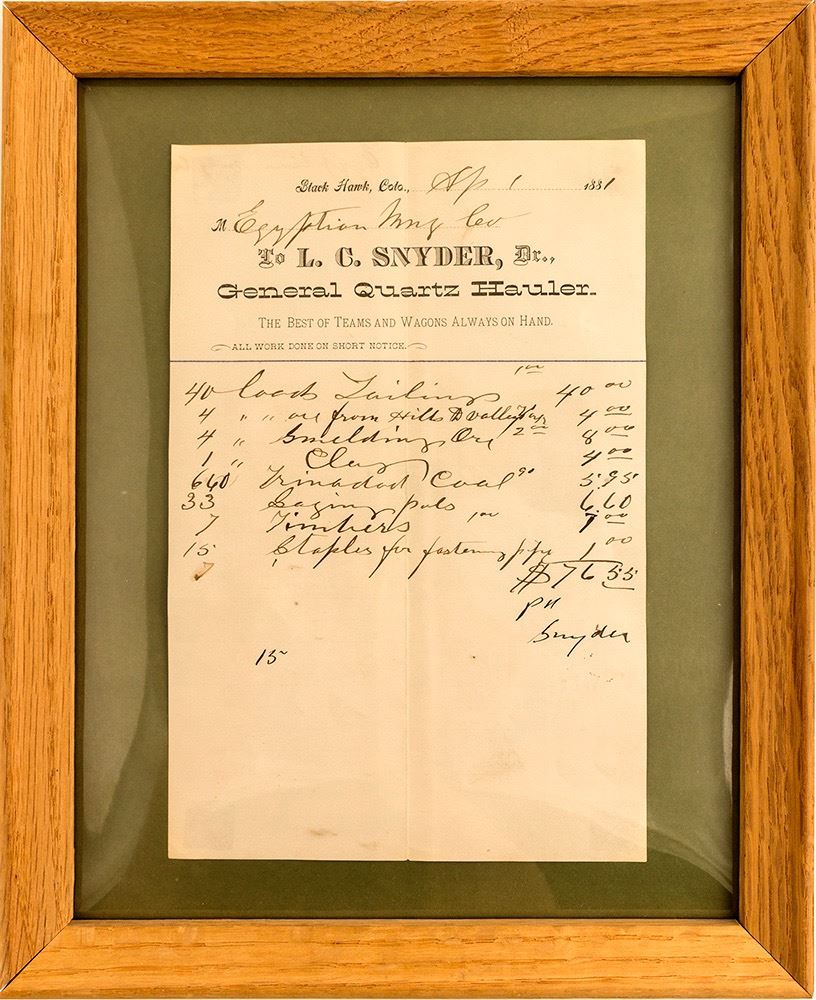 Black Hawk, Colo., Ap 1 1881
M Egyption Mng Co
To L. C. SNYDER, Dr.,
General Quartz Hauler.
THE BEST OF TEAMS AND WAGONS ALWAYS ON HAND.
ALL WORK DONE ON SHORT NOTICE.
40 loads Tailings 1 00 40 00
4 " " ore from Hills D valley 4 00
4 " Smelding Ore 2 00 8 00
1 " Clay 4 00
660 Trinadad Coal 90 5.95
33 Laging pols 6.60
7 Timbers 1 00 7 00
15 Staples for fastening pipe 1 00
7 $76 55
pd
Snyder
15